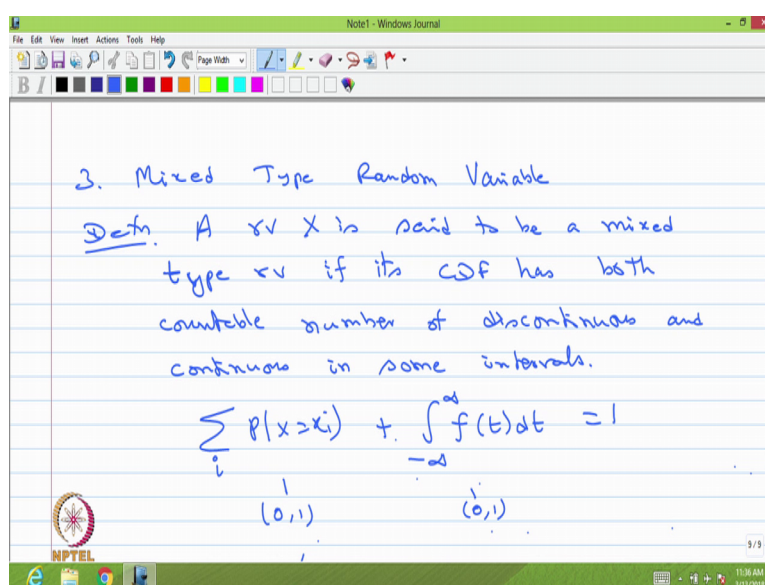 Note1 - Windows Journal
File Edit View Insert Actions Tools Help
Page Width
B I
3. Mixed Type Random Variable
Defn. A rv X is said to be a mixed
type rv if its CDF has both
countable number of discontinuous and
continuous in some intervals.
∑ P(X=xi) + ∫ f(t)dt = 1
i -∞ ∞
(0,1) (0,1)
NPTEL
9/9
11:36 AM